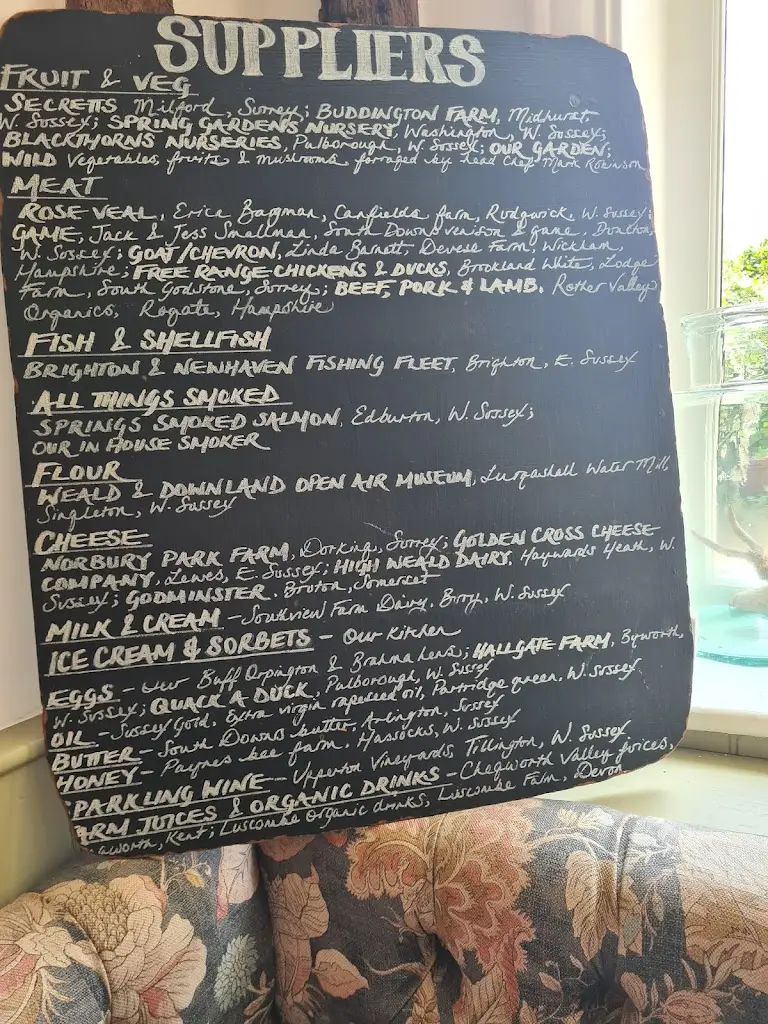 SUPPLIERS
FRUIT & VEG
SECRETTS Milford, Surrey; BUDDINGTON FARM, Midhurst,
W. Sussex; SPRING GARDENS NURSERY, Washington, W. Sussex;
BLACKTHORNS NURSERIES, Pulborough, W. Sussex; OUR GARDEN;
WILD Vegetables, fruits & mushrooms forraged by head chef Mark Robinson
MEAT
ROSE VEAL, Erica Canfields farm, Rudgwick, W. Sussex;
GAME, Jack & Tess Smallman, South Downs venison & game, Duncton,
W. Sussex; GOAT/CHEVRON, Linda Barnett, Devese Farm, Wickham,
Hampshire; FREE RANGE CHICKENS & DUCKS, Brookland White, Lodge
Farm, South Godstone, Surrey; BEEF, PORK & LAMB, Rother Valley
Organics, Rogate, Hampshire
FISH & SHELLFISH
BRIGHTON & NEWHAVEN FISHING FLEET, Brighton, E. Sussex
ALL THINGS SMOKED
SPRINGS SMOKED SALMON, Edburton, W. Sussex;
OUR IN HOUSE SMOKER
FLOUR
WEALD & DOWNLAND OPEN AIR MUSEUM, Lurgashall Water Mill,
Singleton, W. Sussex
CHEESE
NORBURY PARK FARM, Dorking, Surrey; GOLDEN CROSS CHEESE
COMPANY, Lewes, E. Sussex; HIGH WEALD DAIRY, Haywards Heath, W.
Sussex; GODMINSTER, Bruton, Somerset
MILK & CREAM - Southview Farm Dairy, Bury, W. Sussex
ICE CREAM & SORBETS - Our Kitchen
EGGS - Our Buff Orpington & Brahma hens; HALLGATE FARM, Byworth,
W. Sussex; QUACK A DUCK, Pulborough, W. Sussex
OIL - Sussex Gold, Extra virgin rapeseed oil, Partridge green, W. Sussex
BUTTER - South Downs butter, Arlington, Sussex
HONEY - Paynes bee farm, Hassocks, W. Sussex
SPARKLING WINE - Upperton Vineyards, Tillington, W. Sussex
FARM JUICES & ORGANIC DRINKS - Chegworth Valley juices,
Kent; Luscombe Organic drinks, Luscombe Farm, Devon